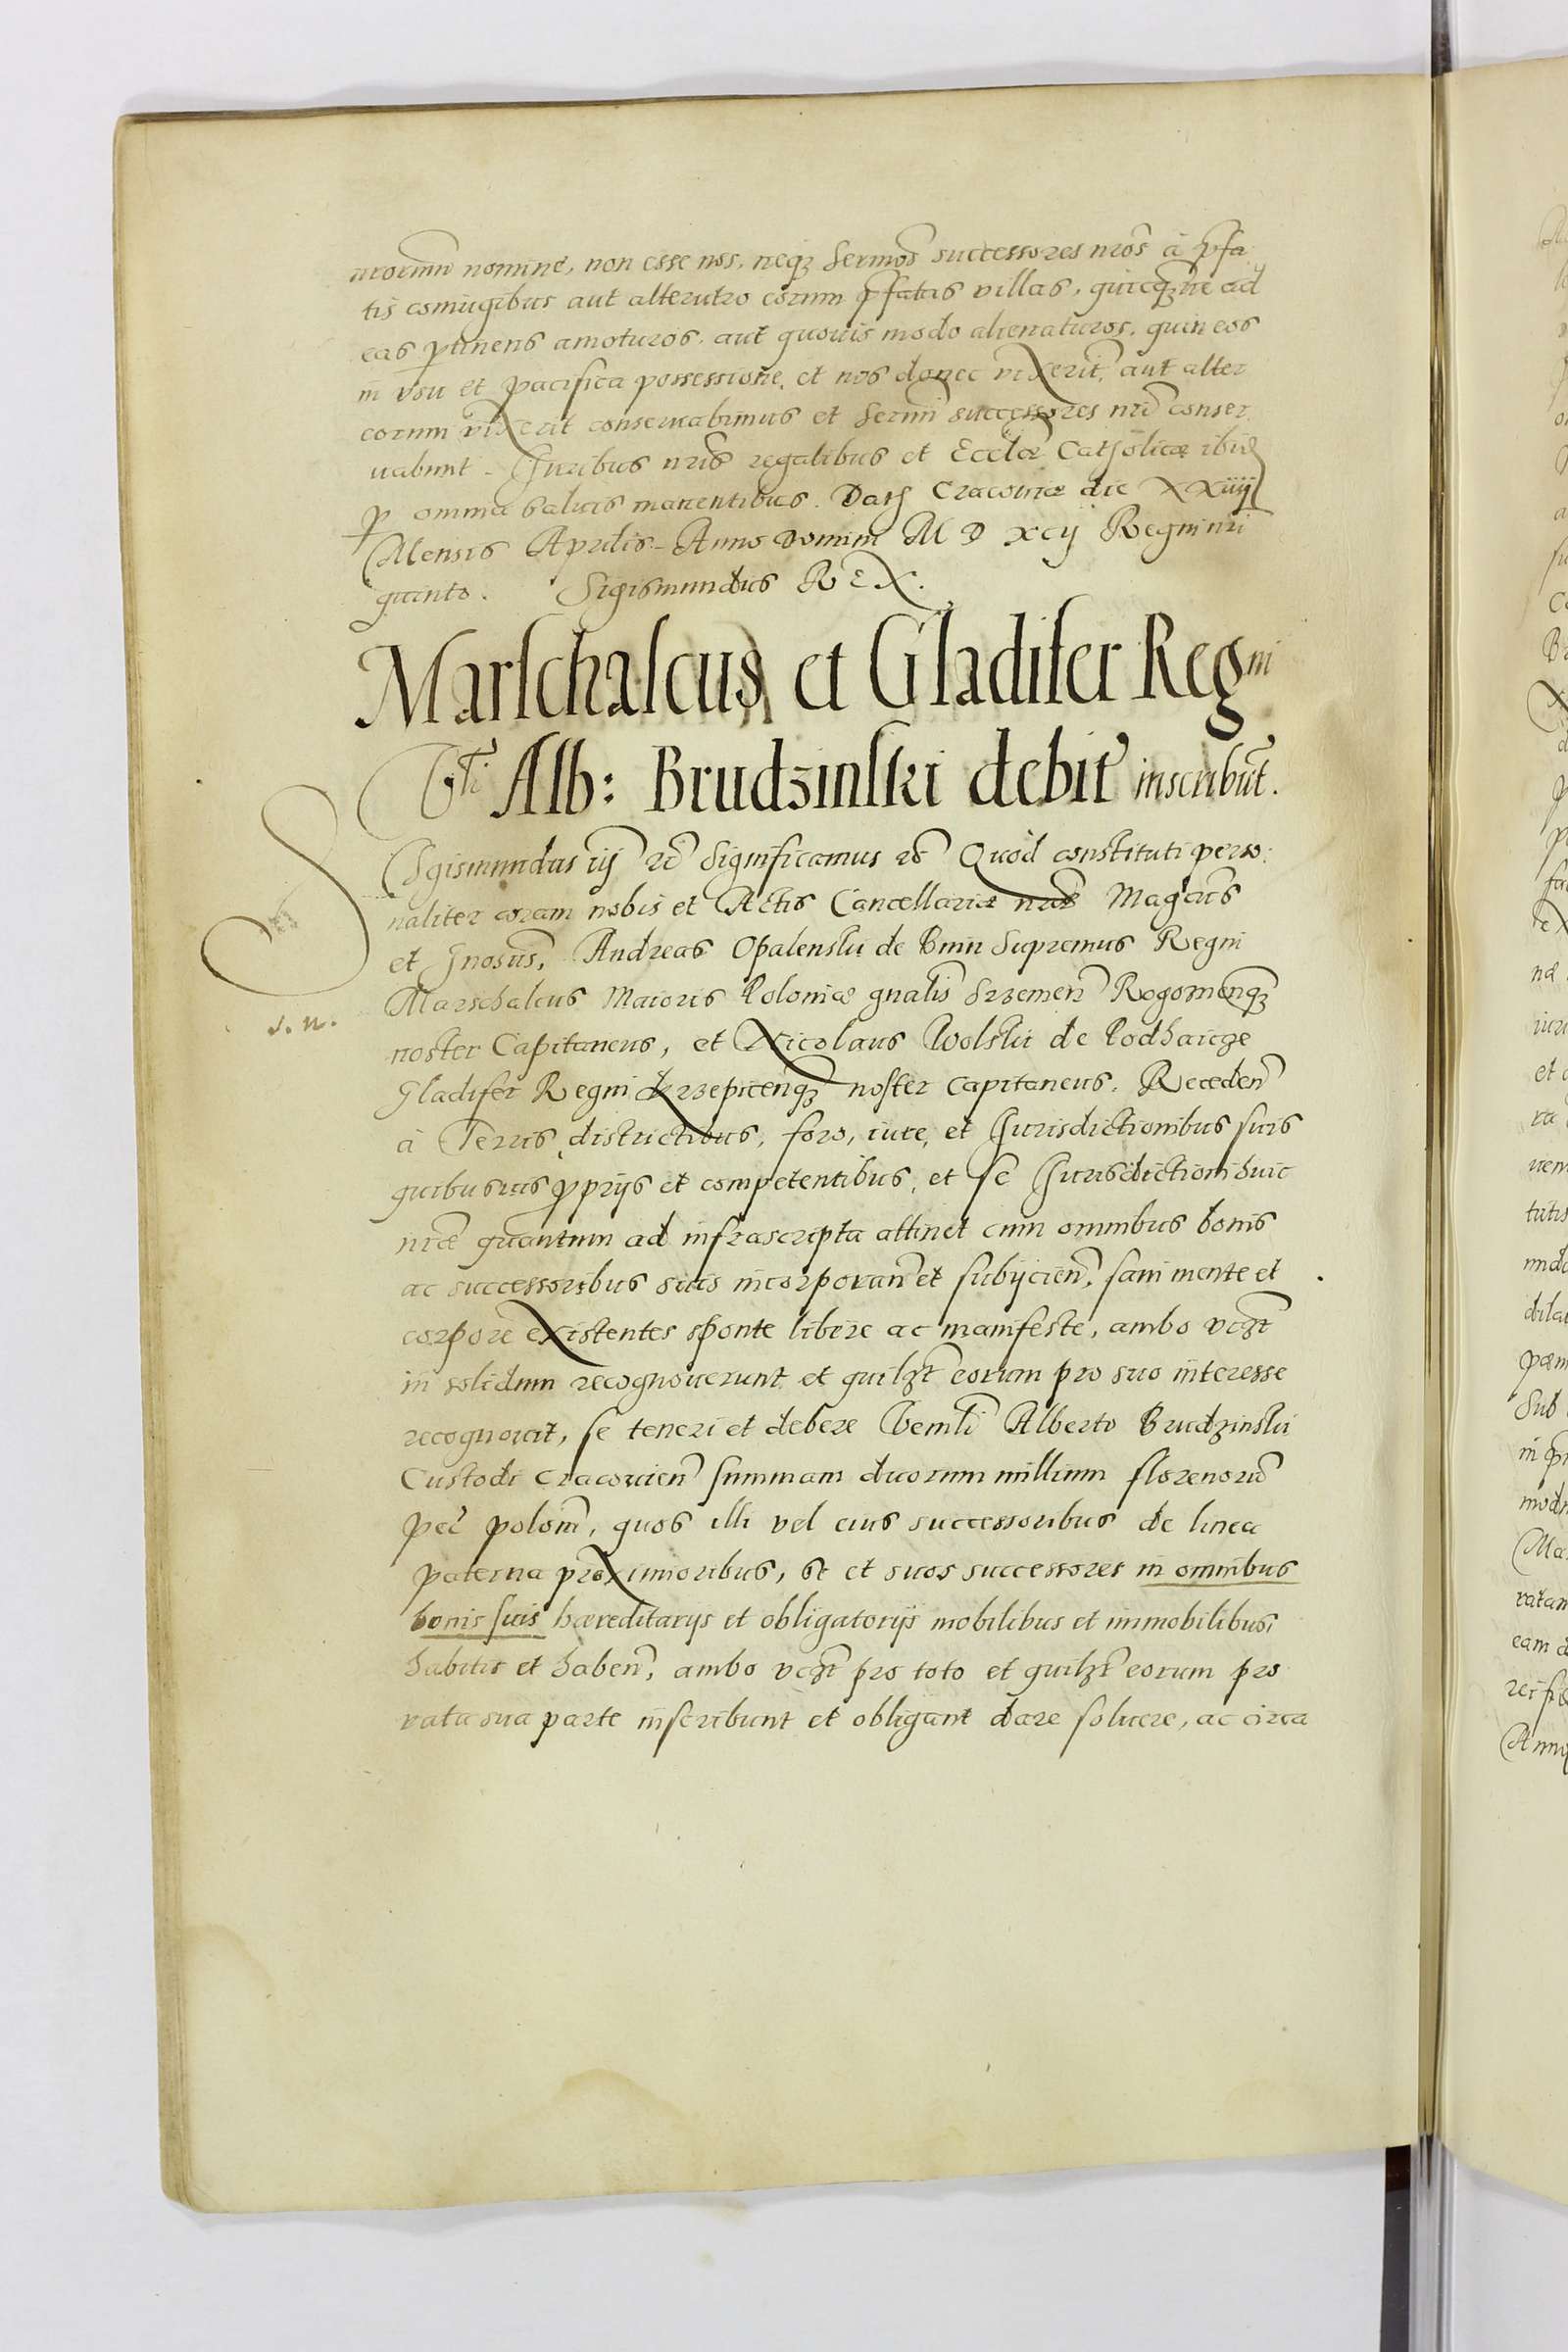 nrorum nomine, non esse nos, neqꝫ Sermos successores nros à pfa
tis coniugibus aut alterutro eorum pfatas villas, quicqꝫ ne ad
eas ptinens amoturos, aut quouis modo alienaturos, quin eos
in vsu et pacifica possessione, et nos donec vixerit, aut alter
eorum vixerit conseruabimus et Sermi successores nri conser
uabunt. Iuribus nris regalibus et Ecclæ Catholicæ ibid
p omnia saluis manentibus. Dat Cracouiæ die XXiiij
Mensis Aprilis Anno Domini M D xcij Regni nri
quinto. Sigismundus REX.
Marschalcus et Gladifer Regni
Vli Alb: Brudzinski debit inscribut.
Sigismundus iij etc Significamus etc Quod constituti perso:
naliter coram nobis et Actis Cancellariæ nræ Magcus
et Gnosus, Andreas Opalenski de Bnin Supremus Regni
Marschalcus Maioris Poloniæ gnalis Srzemen Rogoznenqꝫ
noster Capitaneus, et Nicolaus Wolski de Podhaicze
Gladifer Regni Krzepicenqꝫ noster Capitaneus. Receden
à Terris districtibus, foro, iure, et Iurisdictionibus suis
quibusuis pprijs et competentibus, et se Iurisdictioni huic
nræ quantum ad infrascripta attinet cum omnibus bonis
ac successoribus suis incorporan et subijcien, sani mente et
corpore existentes sponte libere ac manifeste, ambo vnꝫt
in solidum recognouerunt et quilꝫt eorum pro suo interesse
recognouit, se teneri et debere Venli Alberto Brudzinski
Custodi Cracouien summam duorum millium florenoru
pec polon, quos illi vel eius successoribus de linea
paterna proximioribus, se et suos successores in omnibus
bonis suis hæreditarijs et obligatorijs mobilibus et immobilibus,
habitis et haben, ambo vnꝫt pro toto et quilꝫt eorum pro
rata sua parte inscribunt et obligant dare soluere, ac circa
s. n.